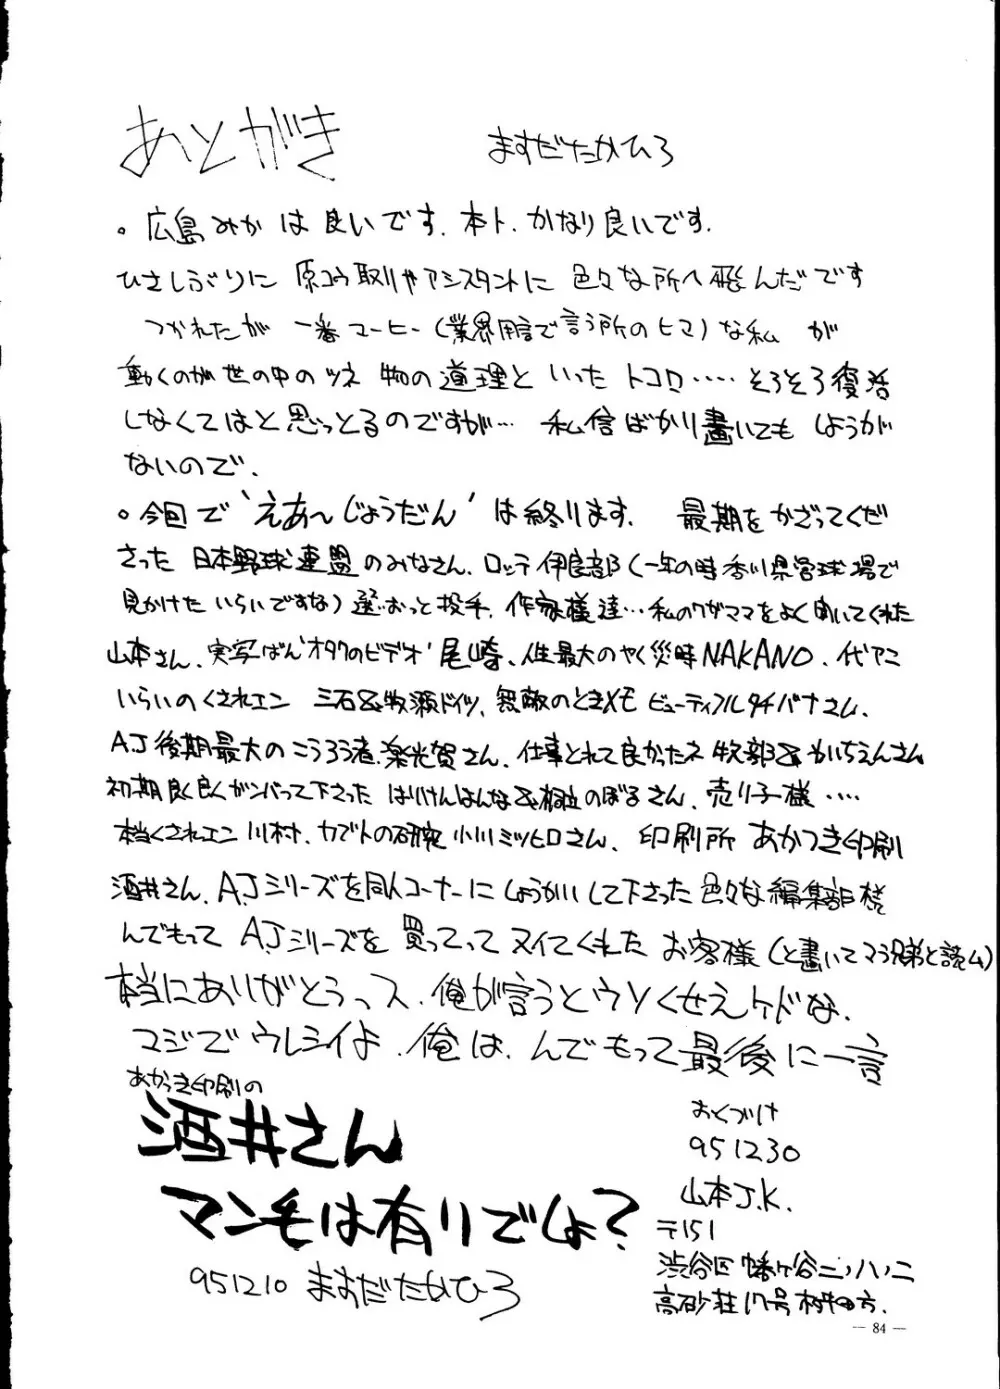 あとがき
ますだたかひろ
。広島みかは良いです。本ト、かなり良いです。
ひさしぶりに 原コウ取りやアシスタントに 色々な所へ飛んだです
つかれたが 一番コーヒー(業界用言で言う所のヒマ)な私 が
動くのが世の中のツネ 物の道理と いった トコロ‥‥‥そろそろ復活
しなくてはと思っとるのですが… 私信ばかり書いても しようが
ないので、
。今回で'えあ〜じょうだん'は終ります。 最期をかざってくだ
さった 日本野球連盟のみなさん、ロッテ伊良部(一年の時香川県営球場で
見かけたいらいですな) おっと投手、作家様達…私のワガママをよく聞いてくれた
山本さん、実写ばん'オタクのビデオ'尾崎、人生最大のやく災時NAKANO、代アニ
いらいのくされエン 三石&牧瀬ドイツ、無敵のときメモ ビューティフルタチバナさム、
AJ後期最大のこうろう者、楽光賀さん、仕事とれて良かったネ 牧部&かいちえんさん
初期良く良くガンバって下さった はりけんはんな& のぼるさん、売り子様‥‥
本当くされエン 川村、カブトの研究 小川ミツヒロさん、印刷所 あかつき印刷
酒井さん、AJシリーズを同人コーナーにしょうかいして下さった 色々な編集部様
んでもって AJシリーズを 買ってって ヌイてくれた お客様(と書いてマラ兄弟と読ム)
本当にありがとうっス、俺が言うとウソくせえケドな、
マジで ウレシイよ、俺は、んでもって最後に一言
あかつき印刷の
酒井さん
マン毛は有りでしょ?
951210 ますだたかひろ
おくづけ
951230
山本J.K.
〒151
渋谷区 幡ヶ谷二ノ八ノ二
高砂荘17号 村田方、
— 84 —